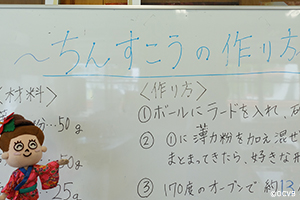 ～ちんすこうの作り方
〈材料〉
粉…50g
0g
25g
〈作り方〉
①ボールにラードを入れ、
②①に薄力粉を加え混ぜ
まとまってきたら、好きな形
③170度のオーブンで約12
©OCVB